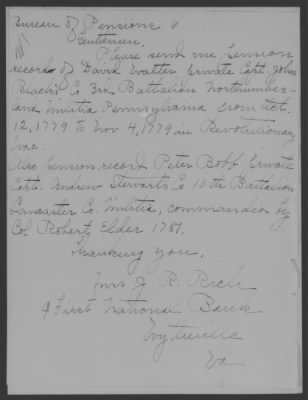 Bureau of Pensions
Gentlemen,
Please send me Pension
record of David Watter Private Capt. John
Co 3rd Battalion Northumber-
land Militia Pennsylvania from Oct.
12, 1779 to Nov. 4, 1779 in Revolutionary
War.
Also Pension record Peter Bobb Private
Capt. Andrew Stewarts Co 10th Battalion
Lancaster Co. Militia, commanded by
Col. Robert Elder 1781.
Thanking you,
Mrs J. R. Rich
First National Bank
Wytheville
Va